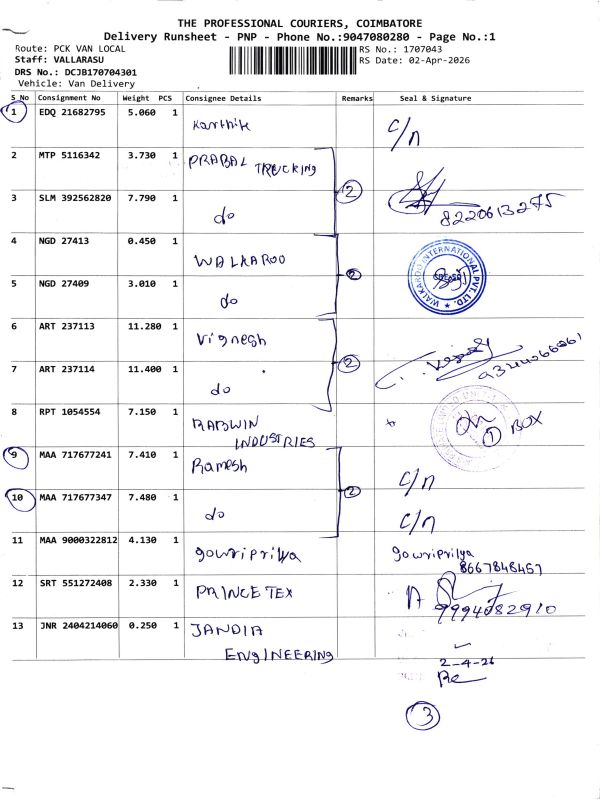 THE PROFESSIONAL COURIERS, COIMBATORE
Delivery Runsheet - PNP - Phone No.:9047080280 - Page No.:1
Route: PCK VAN LOCAL
Staff: VALLARASU
DRS No.: DCJB170704301
Vehicle: Van Delivery
RS No.: 1707043
RS Date: 02-Apr-2026
S No Consignment No Weight PCS Consignee Details Remarks Seal & Signature
1 EDQ 21682795 5.060 1 Karthik C/n
2 MTP 5116342 3.730 1 PRABAL TRUCKING
2
3 SLM 392562820 7.790 1 do 8220613275
4 NGD 27413 0.450 1 WALKAROO
2
WALKAROO INTERNATIONAL PVT. LTD.
5 NGD 27409 3.010 1 do
6 ART 237113 11.280 1 Vignesh
2
7 ART 237114 11.400 1 do
8 RPT 1054554 7.150 1 RADWIN INDUSTRIES
1 BOX
9 MAA 717677241 7.410 1 Ramesh C/n
2
10 MAA 717677347 7.480 1 do C/n
11 MAA 9000322812 4.130 1 gowripriya gowripriya
8667848457
12 SRT 551272408 2.330 1 PRINCE TEX
9994082910
13 JNR 2404214060 0.250 1 JANDIA ENGINEERING
2-4-26
3